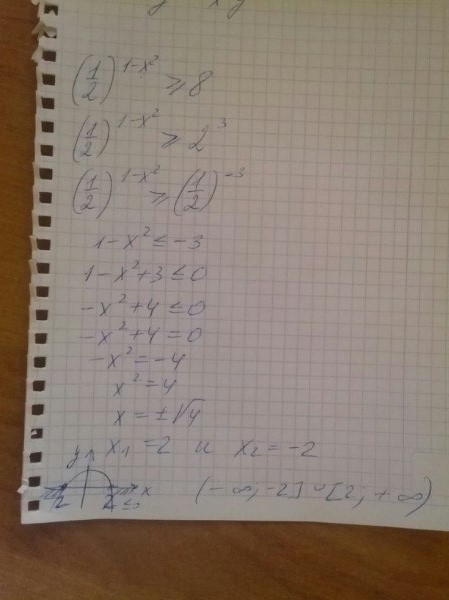 (1/2)^(1-x²) ⩾ 8
(1/2)^(1-x²) ⩾ 2³
(1/2)^(1-x²) ⩾ (1/2)^(-3)
1-x² ≤ -3
1-x²+3 ≤ 0
-x²+4 ≤ 0
-x²+4 = 0
-x² = -4
x² = 4
x = ±√4
x₁ = 2 и x₂ = -2
y
-2 2 x
≤0
(-∞; -2] ∪ [2; +∞)